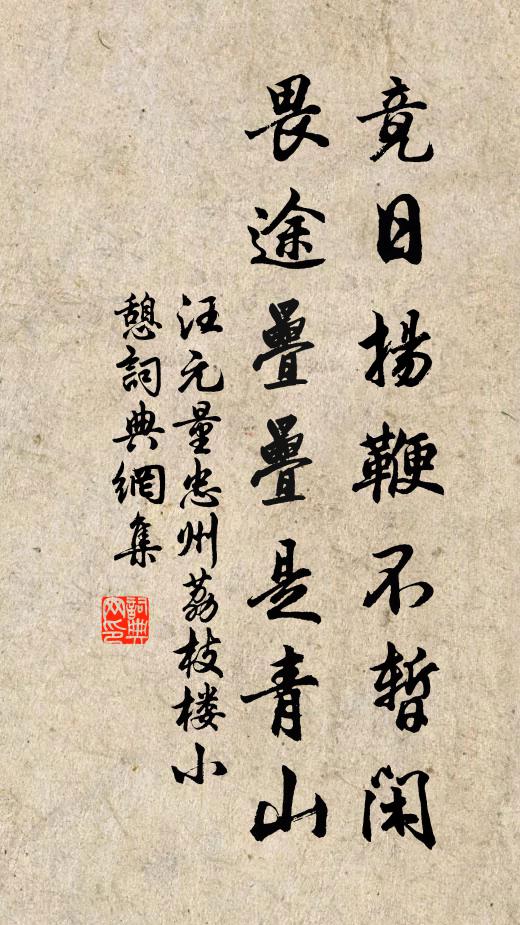 竟日揚鞭不暫閑
畏途疊疊是青山
汪元量忠州荔枝楼小
憩詞典網集
詞典
网印